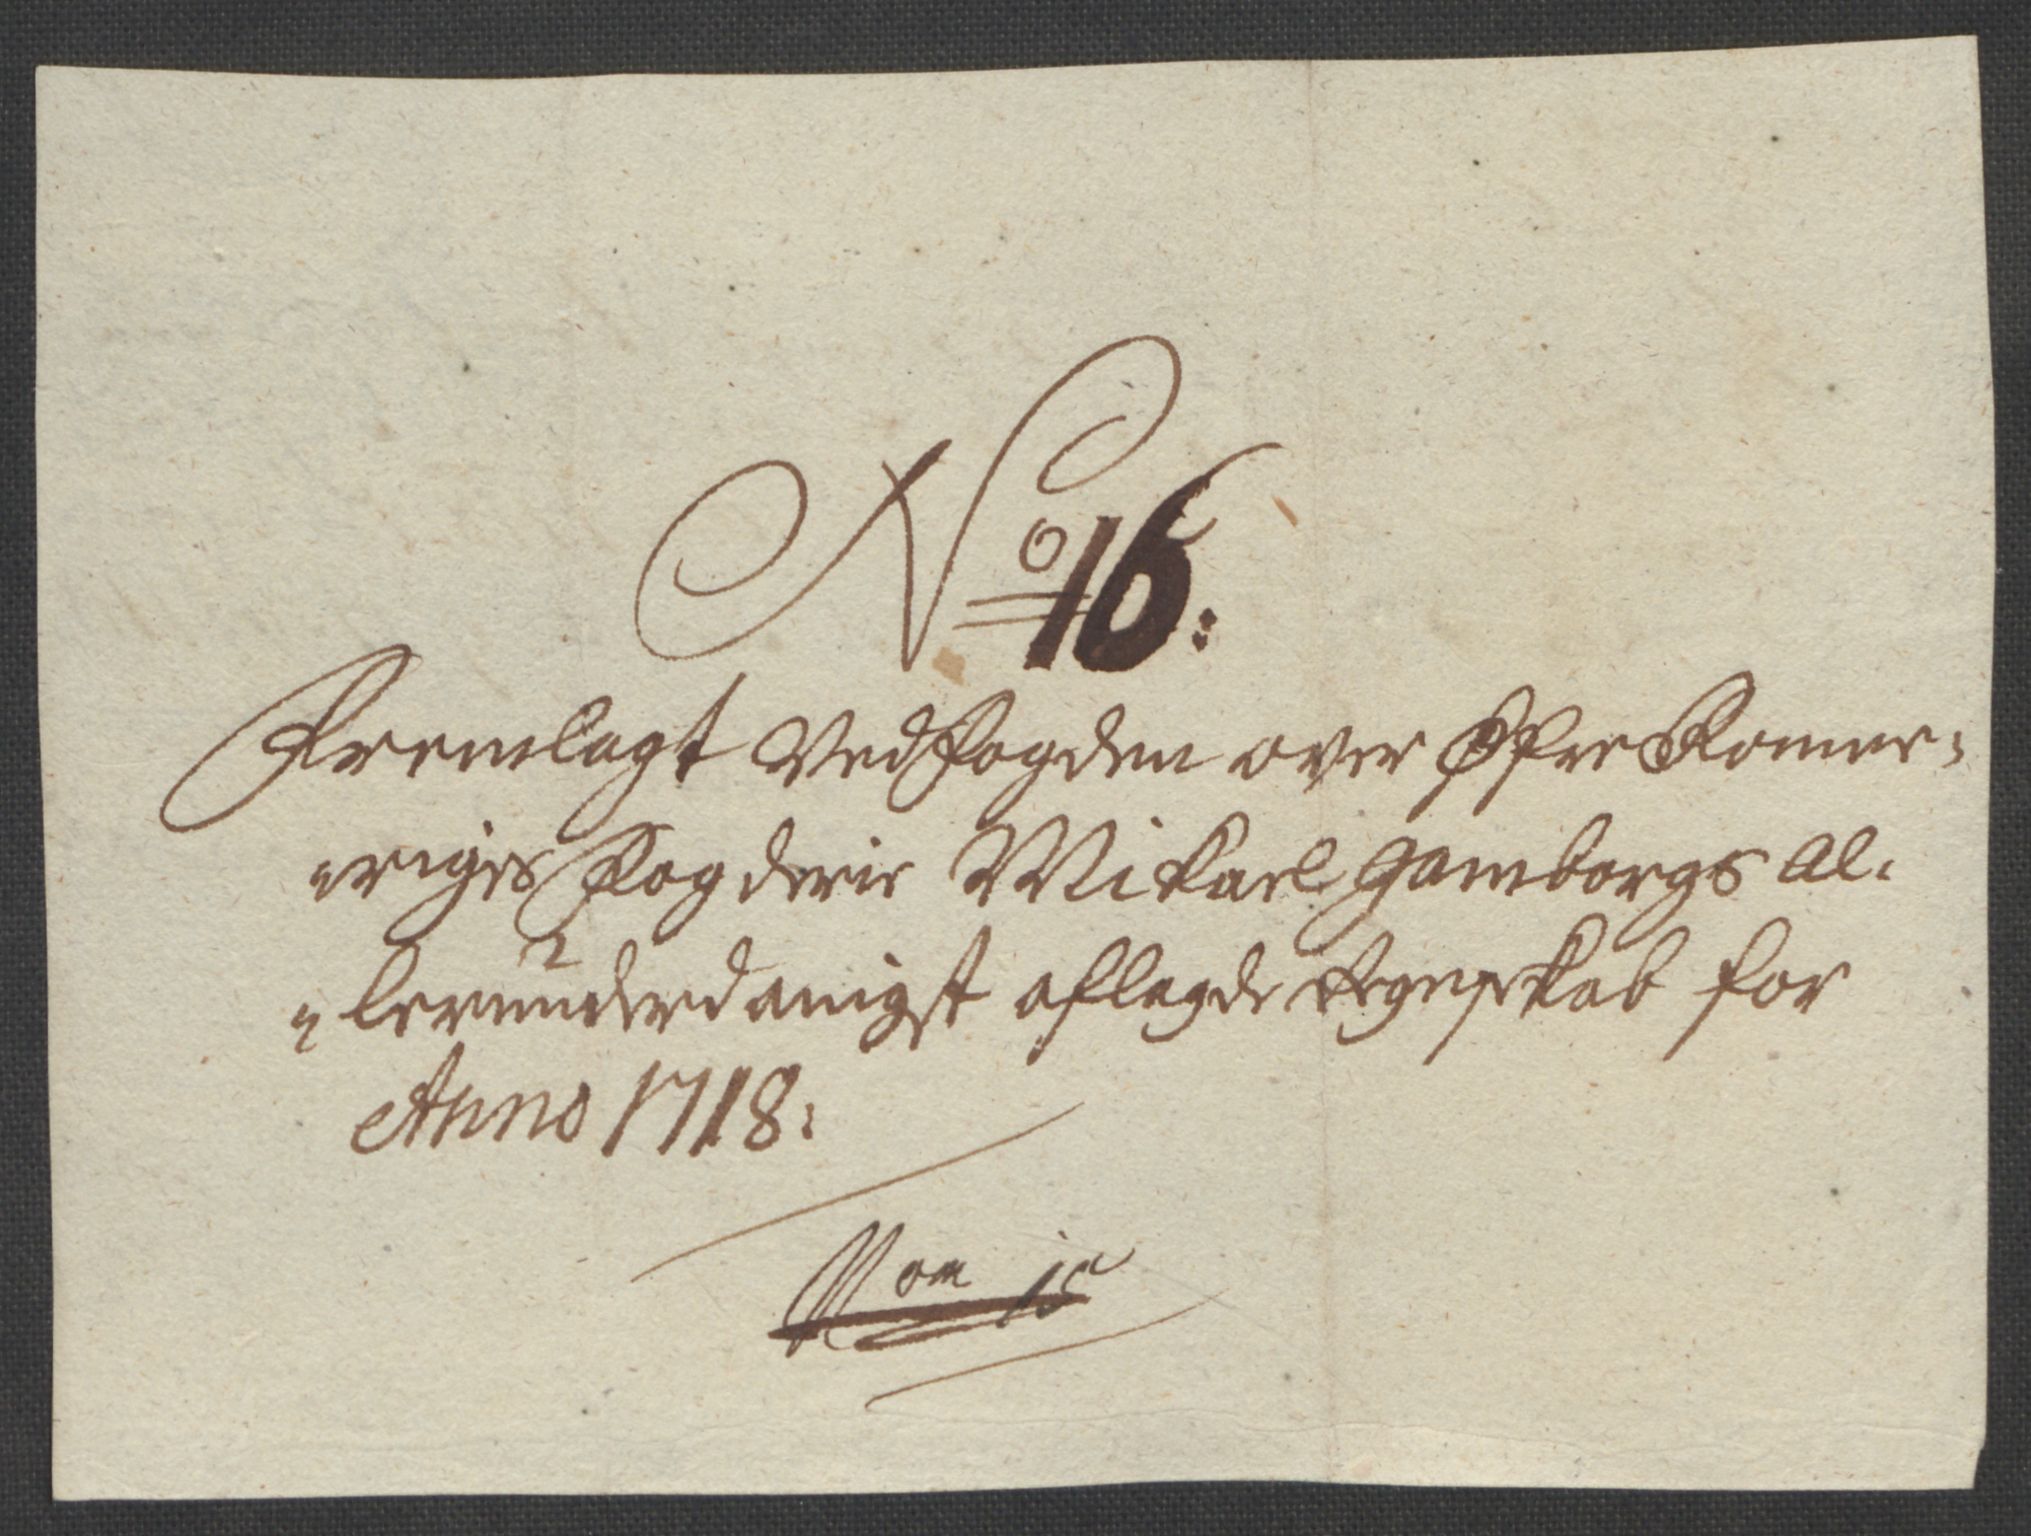 No 16:
Fremlagt Ved fogden over Øfre Romer=
=riges fogderie Mikael Gamborgs al=
=lerunderdanigst aflagde Regnskab for
Anno 1718:
Rom 15